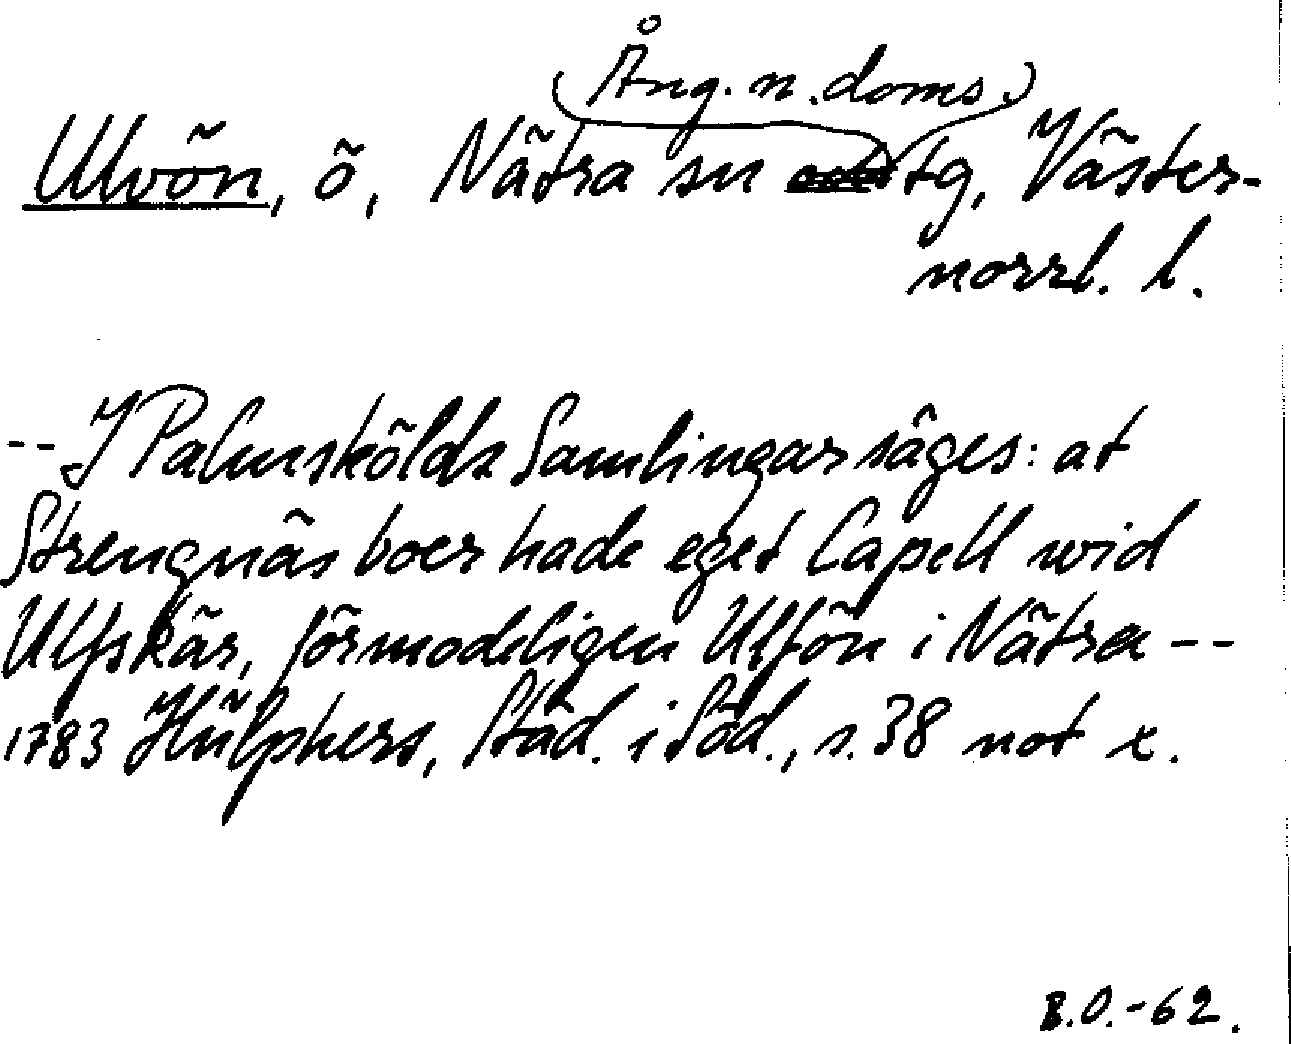 Ång. n. doms.
Ulvön, ö, Nätra sn tg, Väster-
norrl. l.
-- I Palmskölds Samlingar säges: at
Strengnäs boer hade eget Capell wid
Ulfskär, förmodeligen Ulfön i Nätra --
1783 Hülphers, Städ. i Söd., s. 38 not x.
B.O.-62.